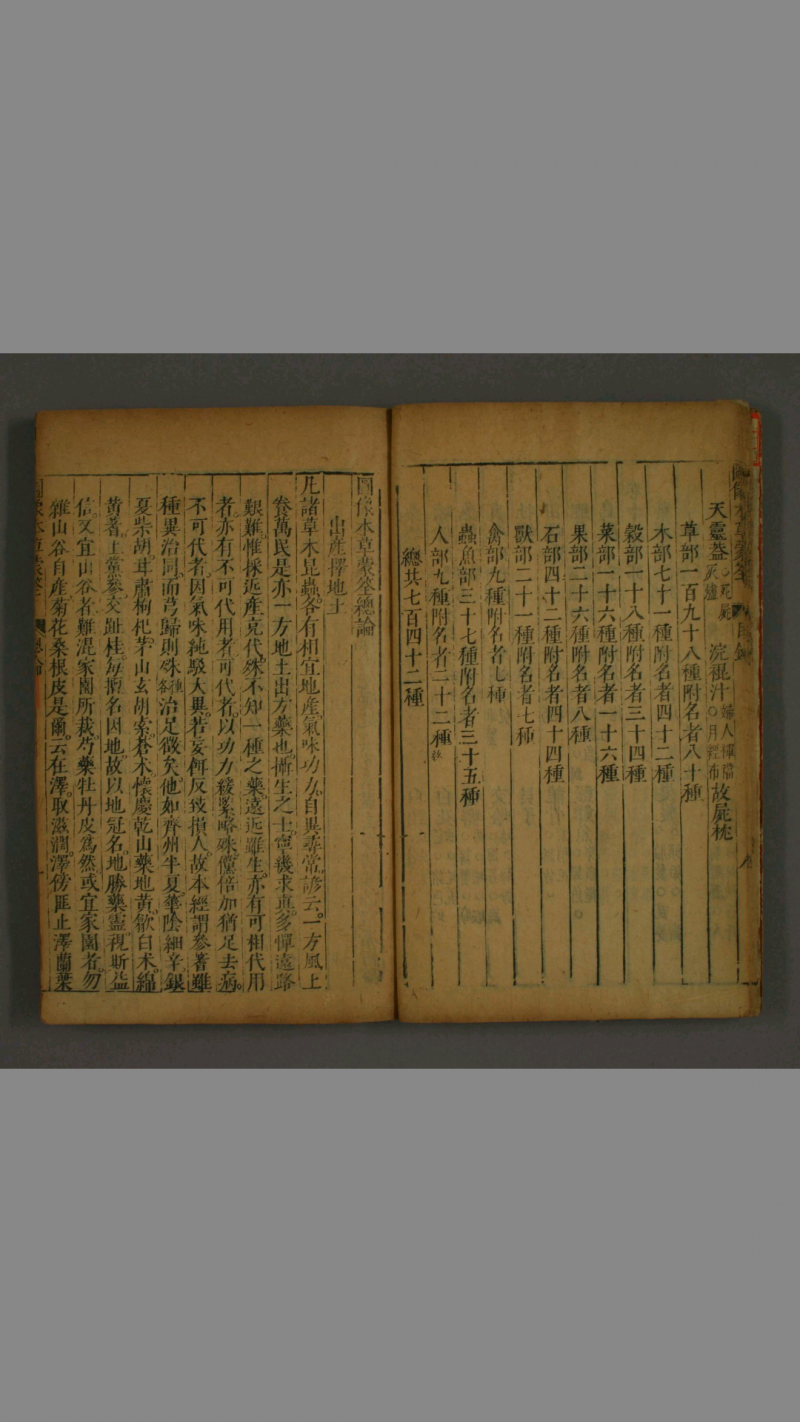 天靈蓋 浣裩汁 故屍枕
草部一百九十八種附名者八十種
木部七十一種附名者四十二種
穀部一十八種附名者三十四種
菜部一十六種附名者一十六種
果部二十六種附名者八種
石部四十二種附名者四十四種
獸部二十一種附名者七種
禽部九種附名者七種
蟲魚部三十七種附名者三十五種
人部九種附名者二十二種
總共七百四十二種
圖像本草蒙筌總論
出產擇地土
凡諸草木昆蟲各有相宜地產氣味功力自異尋常諺云一方風土
養萬民是亦一方地土出方藥也攝生之士寧幾求真多憚遠路
艱難惟採近產充代殊不知一種之藥遠近雖生亦有可相代用
者亦有不可代用者可代者以功力緩緊略殊儻倍加猶足去病
不可代者因氣味純駁大異若妄餌反致損人故本經謂參蓍雖
種異治同而芎歸則殊種各治足徵矣他如齊州半夏華陰細辛銀
夏柴胡甘肅枸杞茅山玄胡索蒼朮懷慶乾山藥地黃歙白朮綿
黃蓍上黨參交趾桂每擅名因地故以地冠名地勝藥靈視斯益
信又宜山谷者難混家園所栽芍藥牡丹皮為然或宜家園者勿
雜山谷自產菊花桑根皮是爾云在澤取滋潤澤傍匪止澤蘭葉